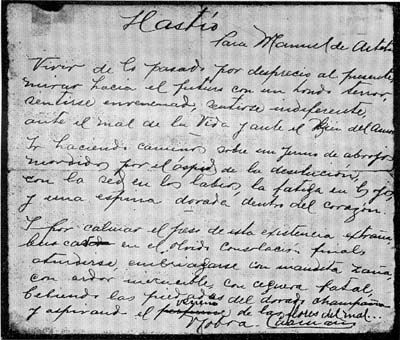 Hastío
Para Manuel de
Vivir de lo pasado por desprecio al presente,
mirar hacia el futuro con un hondo terror,
sentirse envenenado, sentirse indiferente,
ante el mal de la Vida y ante el Bien del Amor.
Ir haciendo caminos sobre un yermo de abrojos
mordidos por el áspid de la desilusión,
con la sed en los labios, la fatiga en los ojos
y una espina dorada dentro del corazón.
Y por calmar el peso de esta existencia extraña
buscar en el olvido consolación final,
aturdirse, embriagarse con inaudita saña,
con ardor invencible, con ceguera fatal,
bebiendo las piedades del dorado champaña
y aspirando el veneno de las flores del mal...
Noboa Caamaño